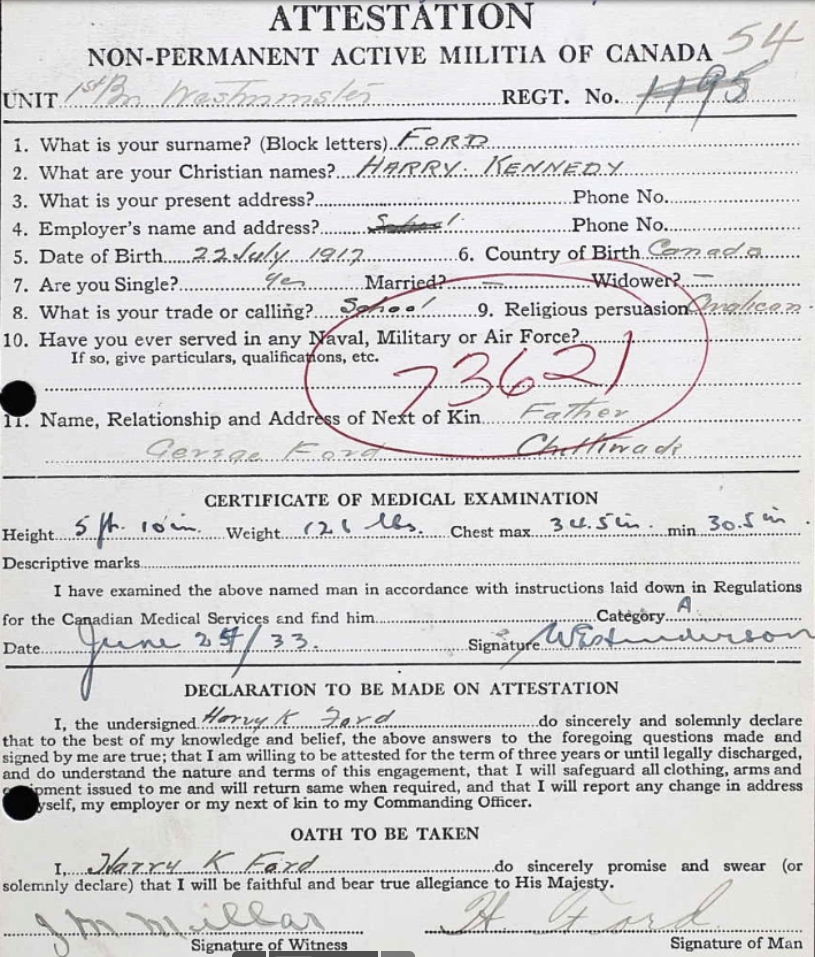 ATTESTATION
NON-PERMANENT ACTIVE MILITIA OF CANADA 54
UNIT 1st Bn Westminster REGT. No. 1195
1. What is your surname? (Block letters) FORD
2. What are your Christian names? HARRY. KENNEDY
3. What is your present address? Phone No.
4. Employer's name and address? School Phone No.
5. Date of Birth 22 July 1917 6. Country of Birth Canada
7. Are you Single? Yes Married? — Widower? —
8. What is your trade or calling? School 9. Religious persuasion Anglican.
10. Have you ever served in any Naval, Military or Air Force?
If so, give particulars, qualifications, etc.
73621
11. Name, Relationship and Address of Next of Kin Father
George Ford Chilliwack
CERTIFICATE OF MEDICAL EXAMINATION
Height 5 ft. 10 in. Weight 121 lbs. Chest max 34.5 in. min 30.5 in.
Descriptive marks
I have examined the above named man in accordance with instructions laid down in Regulations
for the Canadian Medical Services and find him Category A
Date June 25/33. Signature
DECLARATION TO BE MADE ON ATTESTATION
I, the undersigned Harry K Ford do sincerely and solemnly declare
that to the best of my knowledge and belief, the above answers to the foregoing questions made and
signed by me are true; that I am willing to be attested for the term of three years or until legally discharged,
and do understand the nature and terms of this engagement, that I will safeguard all clothing, arms and
equipment issued to me and will return same when required, and that I will report any change in address
myself, my employer or my next of kin to my Commanding Officer.
OATH TO BE TAKEN
I, Harry K Ford do sincerely promise and swear (or
solemnly declare) that I will be faithful and bear true allegiance to His Majesty.
J M Millar H. Ford
Signature of Witness Signature of Man